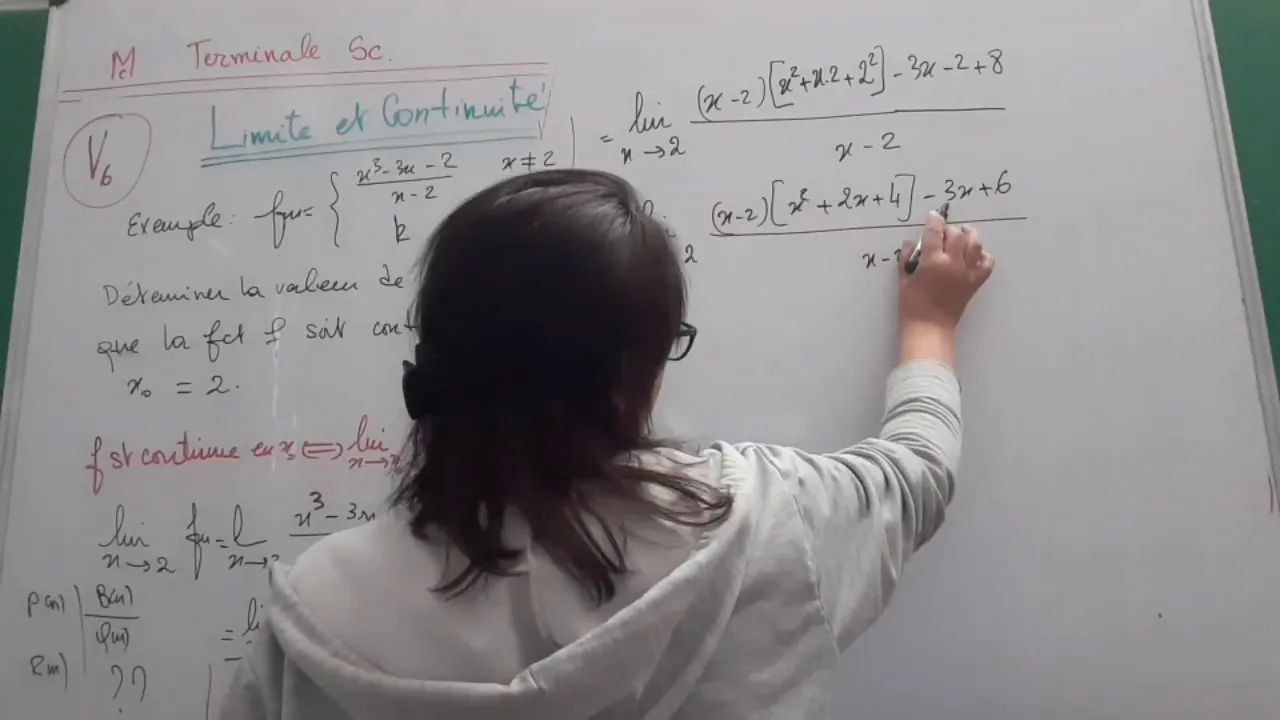 Mc Terminale Sc.
Limite et Continuité
V6
Exemple: f(x) = { x³-3x-2 / x-2 x≠2
k
Déterminer la valeur de
que la fct f soit cont
x₀ = 2.
f st continue en x₀ ⟺ lim x→x₀
lim x→2 f(x) = l x→2 x³-3x
P(x) | B(x)
R(x) | Q(x)
??
= li
= lim x→2 (x-2)[x²+x.2+2²]-3x-2+8 / x-2
2 (x-2)[x²+2x+4]-3x+6 / x-2